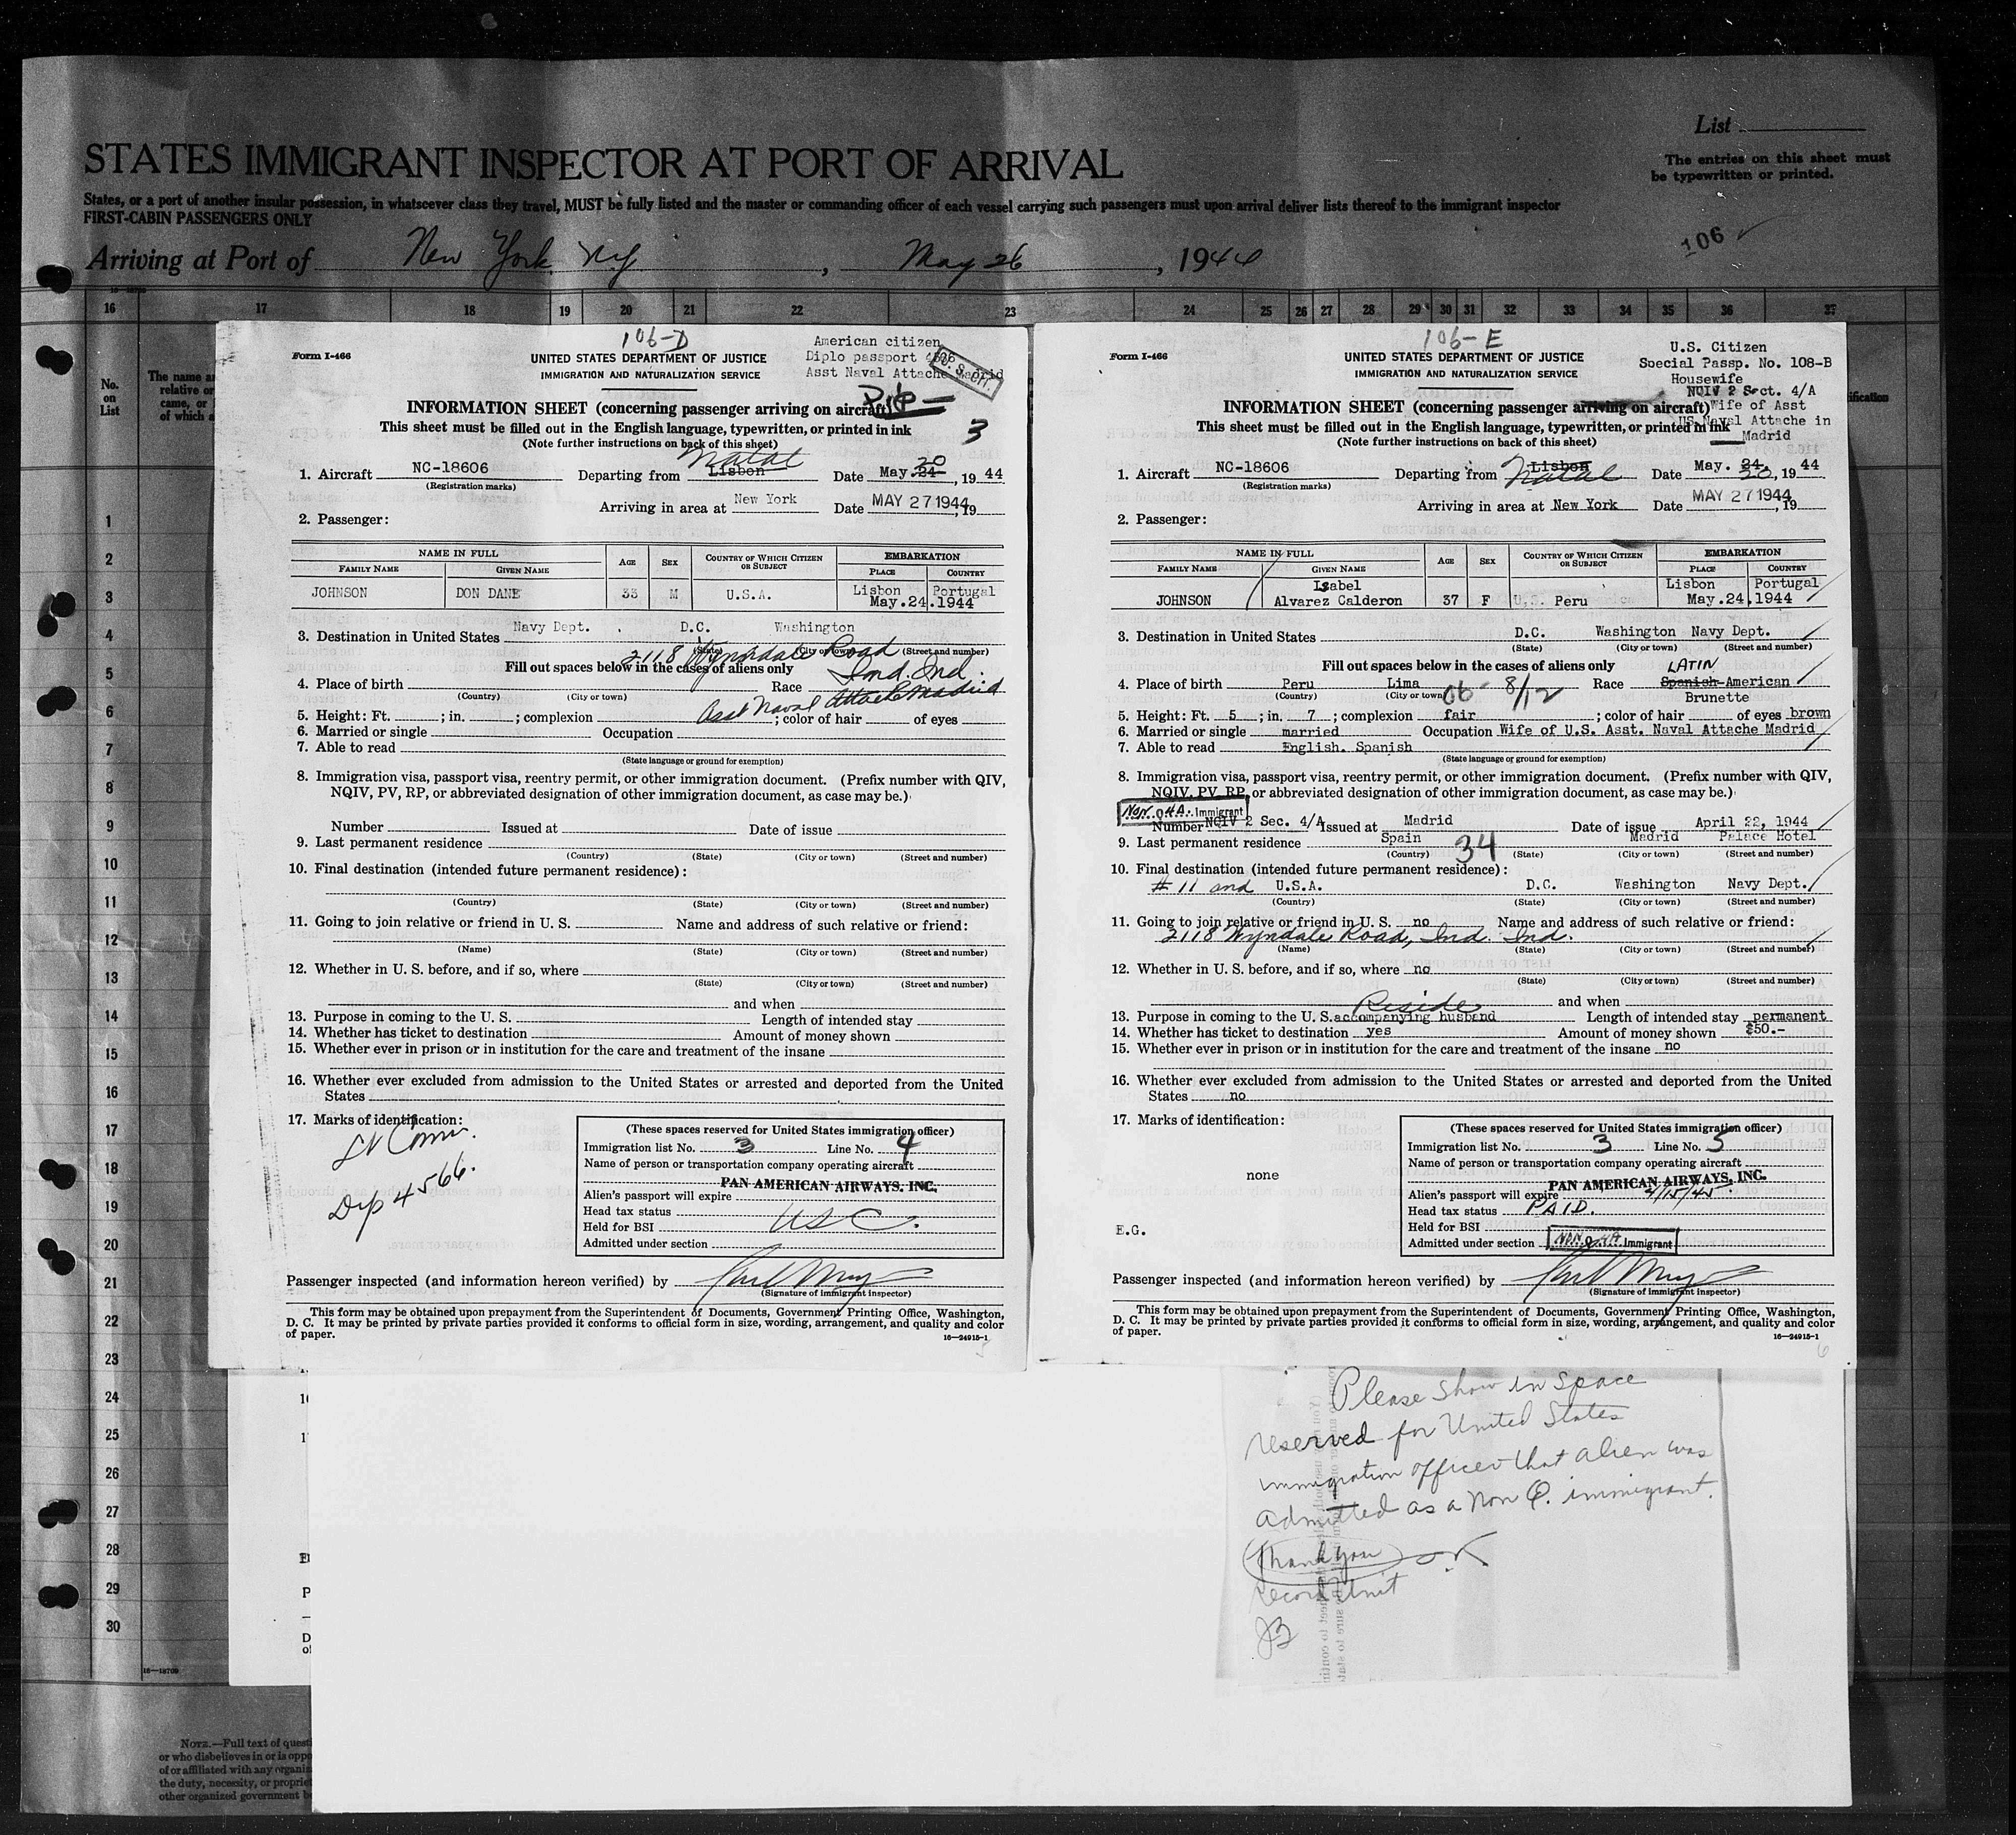 List
STATES IMMIGRANT INSPECTOR AT PORT OF ARRIVAL
The entries on this sheet must
be typewritten or printed.
States, or a port of another insular possession, in whatsoever class they travel, MUST be fully listed and the master or commanding officer of each vessel carrying such passengers must upon arrival deliver lists thereof to the immigrant inspector
FIRST-CABIN PASSENGERS ONLY
106
Arriving at Port of New York Ny, May 26, 1944
16 17 18 19 20 21 22 23 24 25 26 27 28 29 30 31 32 33 34 35 36 37
No.
on
List
The name a
relative or
came, or
of which a
1
2
3
4
5
6
7
8
9
10
11
12
13
14
15
16
17
18
19
20
21
22
23
24
25
26
27
28
29
30
16—18709
NOTE.—Full text of quest
or who disbelieves in or is oppo
of or affiliated with any organi
the duty, necessity, or propriet
other organized government b
106-D
Form I-466
UNITED STATES DEPARTMENT OF JUSTICE
IMMIGRATION AND NATURALIZATION SERVICE
American citizen
Diplo passport
Asst Naval Attache Madrid
3
INFORMATION SHEET (concerning passenger arriving on aircraft)
This sheet must be filled out in the English language, typewritten, or printed in ink
(Note further instructions on back of this sheet)
1. Aircraft NC-18606 Departing from Lisbon Natal Date May. 24 20, 19 44
(Registration marks)
Arriving in area at New York Date MAY 27 1944, 19
2. Passenger:
NAME IN FULL AGE SEX COUNTRY OF WHICH CITIZEN OR SUBJECT EMBARKATION
FAMILY NAME GIVEN NAME PLACE COUNTRY
JOHNSON DON DANE 33 M U.S.A. Lisbon Portugal
May.24.1944
3. Destination in United States Navy Dept. D.C. Washington
(State) (City or town) (Street and number)
2118 Wyndale Road
Ind. Ind.
Fill out spaces below in the cases of aliens only
4. Place of birth Race
(Country) (City or town)
Asst Naval Attache Madrid
5. Height: Ft. ; in. ; complexion ; color of hair of eyes
6. Married or single Occupation
7. Able to read
(State language or ground for exemption)
8. Immigration visa, passport visa, reentry permit, or other immigration document. (Prefix number with QIV,
NQIV, PV, RP, or abbreviated designation of other immigration document, as case may be.)
Number Issued at Date of issue
9. Last permanent residence
(Country) (State) (City or town) (Street and number)
10. Final destination (intended future permanent residence):
(Country) (State) (City or town) (Street and number)
11. Going to join relative or friend in U. S. Name and address of such relative or friend:
(Name) (State) (City or town) (Street and number)
12. Whether in U. S. before, and if so, where
(State) (City or town) (Street and number)
and when
13. Purpose in coming to the U. S. Length of intended stay
14. Whether has ticket to destination Amount of money shown
15. Whether ever in prison or in institution for the care and treatment of the insane
16. Whether ever excluded from admission to the United States or arrested and deported from the United
States
17. Marks of identification:
Lt Comm.
Dip 4566.
(These spaces reserved for United States immigration officer)
Immigration list No. 3 Line No. 4
Name of person or transportation company operating aircraft
PAN AMERICAN AIRWAYS, INC.
Alien's passport will expire
Head tax status USC.
Held for BSI
Admitted under section
Passenger inspected (and information hereon verified) by
(Signature of immigrant inspector)
This form may be obtained upon prepayment from the Superintendent of Documents, Government Printing Office, Washington,
D. C. It may be printed by private parties provided it conforms to official form in size, wording, arrangement, and quality and color
of paper.
16—24915-1
106-E
Form I-466
UNITED STATES DEPARTMENT OF JUSTICE
IMMIGRATION AND NATURALIZATION SERVICE
U.S. Citizen
Special Passp. No. 108-B
Housewife
NQIV 2 Sect. 4/A
Wife of Asst
US Navsl Attache in
Madrid
INFORMATION SHEET (concerning passenger arriving on aircraft)
This sheet must be filled out in the English language, typewritten, or printed in ink
(Note further instructions on back of this sheet)
1. Aircraft NC-18606 Departing from Lisbon Natal Date May. 24. 20, 19 44
(Registration marks)
Arriving in area at New York Date MAY 27 1944, 19
2. Passenger:
NAME IN FULL AGE SEX COUNTRY OF WHICH CITIZEN OR SUBJECT EMBARKATION
FAMILY NAME GIVEN NAME PLACE COUNTRY
JOHNSON Isabel Alvarez Calderon 37 F U.S. Peru Lisbon Portugal
May.24.1944
3. Destination in United States D.C. Washington Navy Dept.
(State) (City or town) (Street and number)
Fill out spaces below in the cases of aliens only
LATIN
4. Place of birth Peru Lima Race Spanish-American
(Country) (City or town)
06 8/12
Brunette
5. Height: Ft. 5; in. 7; complexion fair; color of hair of eyes brown
6. Married or single married Occupation Wife of U.S. Asst. Naval Attache Madrid
7. Able to read English. Spanish
(State language or ground for exemption)
8. Immigration visa, passport visa, reentry permit, or other immigration document. (Prefix number with QIV,
NQIV, PV, RP, or abbreviated designation of other immigration document, as case may be.)
NON Q 4A. Immigrant
Number NQIV 2 Sec. 4/A Issued at Madrid Date of issue April 22, 1944
9. Last permanent residence Spain Madrid Palace Hotel
(Country) (State) (City or town) (Street and number)
34
10. Final destination (intended future permanent residence):
# 11 and U.S.A. D.C. Washington Navy Dept.
(Country) (State) (City or town) (Street and number)
11. Going to join relative or friend in U. S. no Name and address of such relative or friend:
2118 Wyndale Road, Ind. Ind.
(Name) (State) (City or town) (Street and number)
12. Whether in U. S. before, and if so, where no
(State) (City or town) (Street and number)
Reside and when
13. Purpose in coming to the U. S. accompanying husband Length of intended stay permanent
14. Whether has ticket to destination yes Amount of money shown $50.-
15. Whether ever in prison or in institution for the care and treatment of the insane no
16. Whether ever excluded from admission to the United States or arrested and deported from the United
States no
17. Marks of identification:
none
E.G.
(These spaces reserved for United States immigration officer)
Immigration list No. 3 Line No. 5
Name of person or transportation company operating aircraft
PAN AMERICAN AIRWAYS, INC.
Alien's passport will expire 4/15/45.
Head tax status PAID.
Held for BSI
Admitted under section NON Q 4A Immigrant
Passenger inspected (and information hereon verified) by
(Signature of immigrant inspector)
This form may be obtained upon prepayment from the Superintendent of Documents, Government Printing Office, Washington,
D. C. It may be printed by private parties provided it conforms to official form in size, wording, arrangement, and quality and color
of paper.
16—24915-1
Please show in space
reserved for United States
immigration officer that alien was
admitted as a Non Q. immigrant.
Thank you
Record Unit